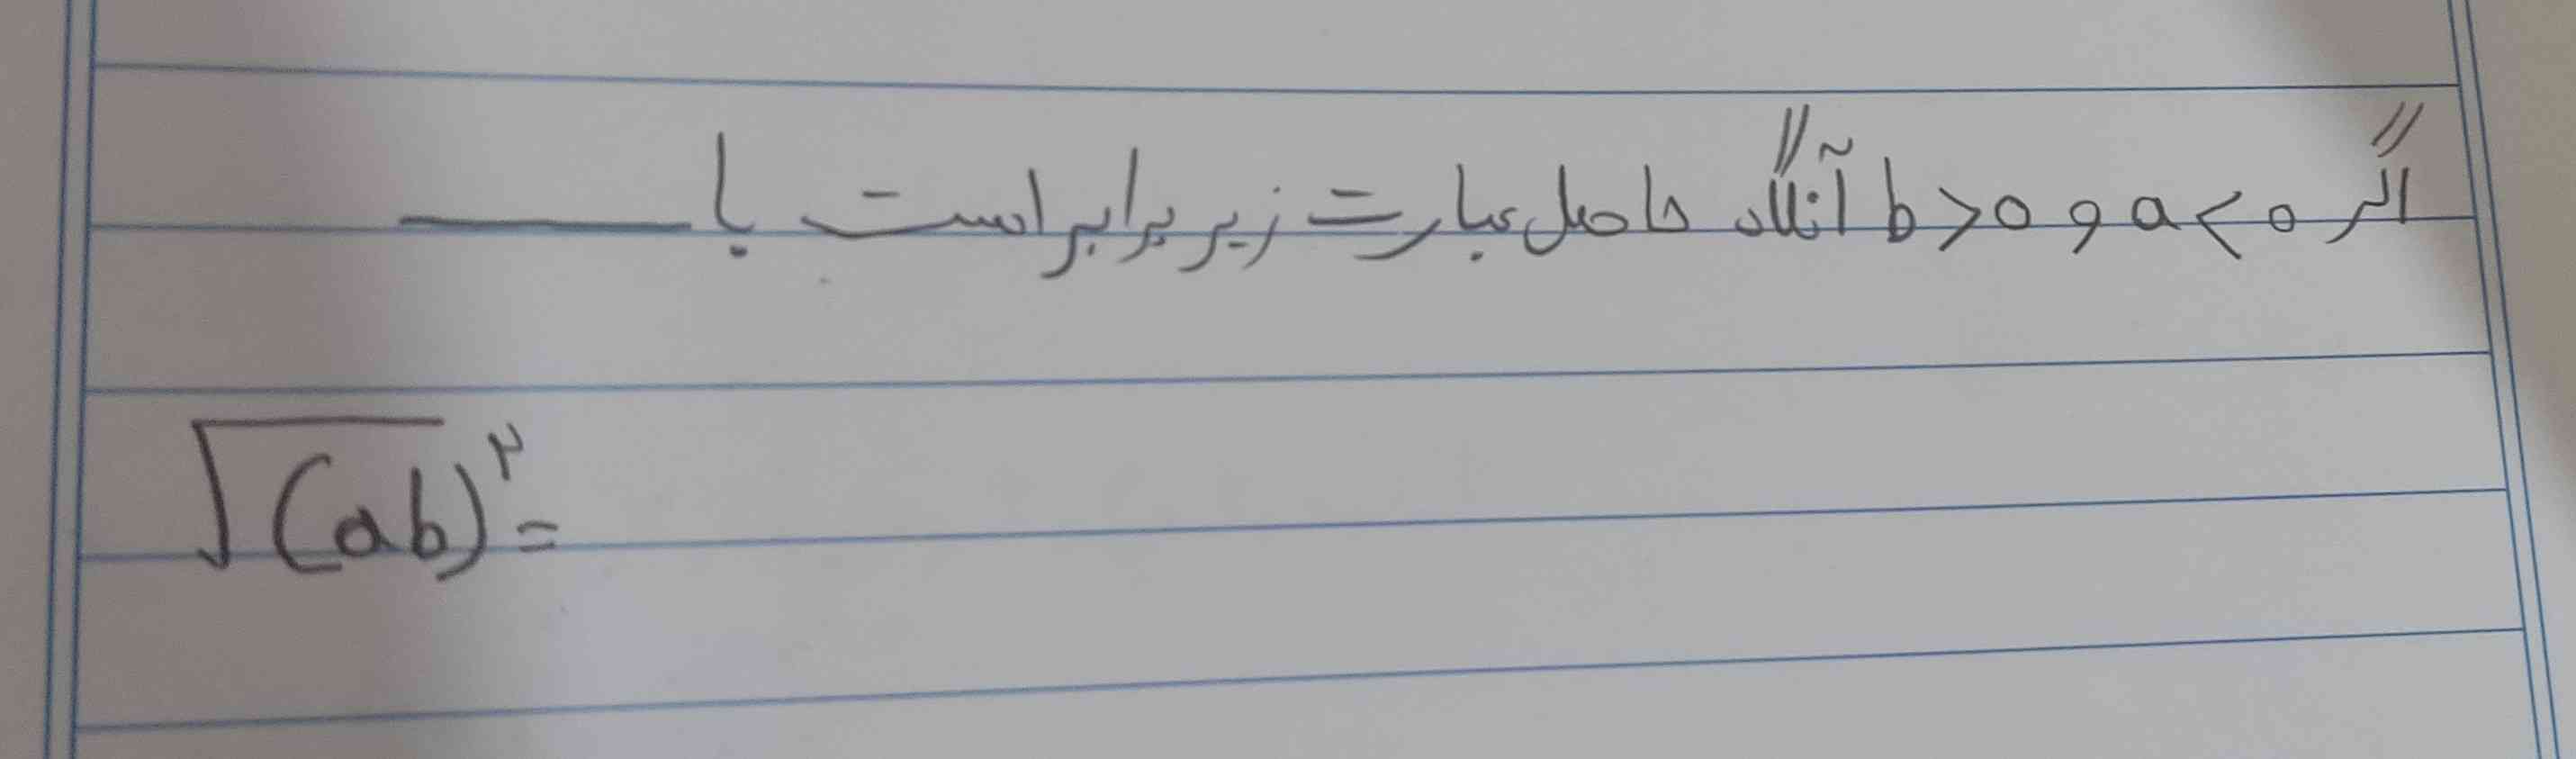 اگر a<0 و b>0 آنگاه حاصل عبارت زیر برابر است با ______
√(ab)^۲ =